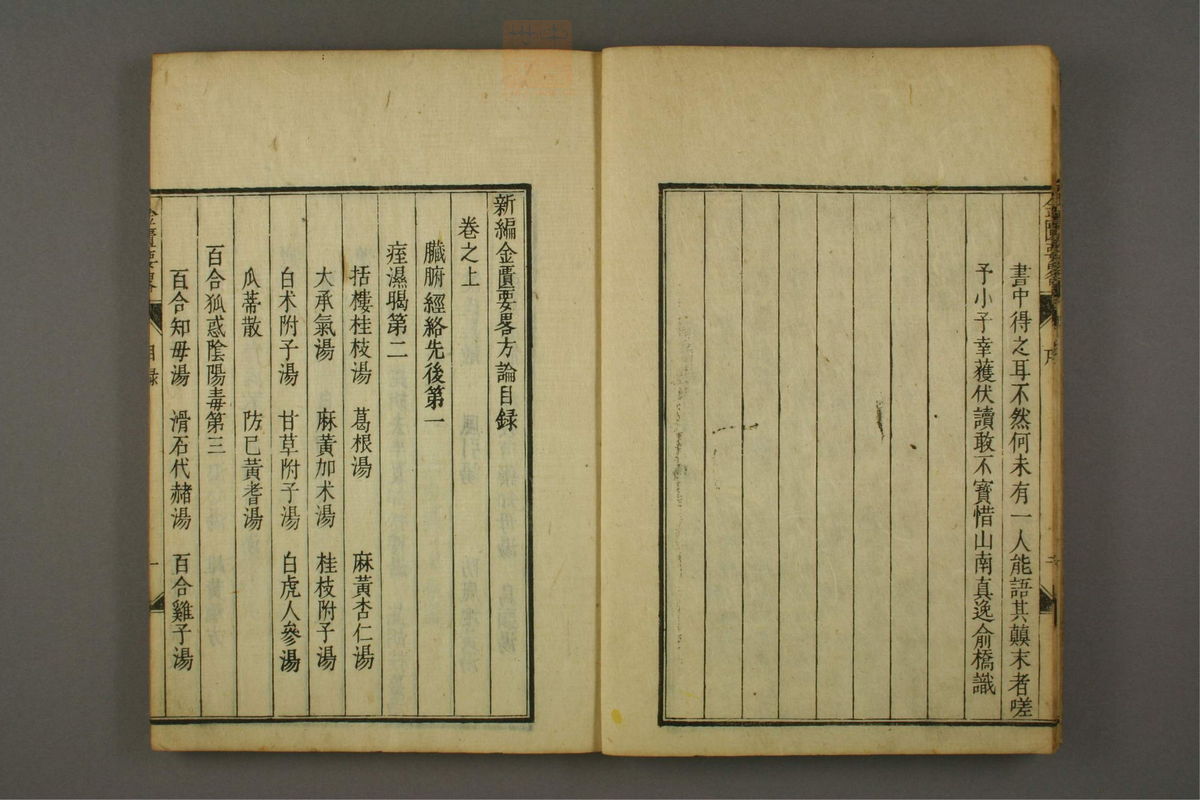 書中得之耳不然何未有一人能語其顛末者嗟
予小子幸獲伏讀敢不寶惜山南真逸俞橋識
新編金匱要畧方論目録
卷之上
臟腑經絡先後第一
痓濕暍第二
栝樓桂枝湯 葛根湯 麻黃杏仁湯
大承氣湯 麻黃加术湯 桂枝附子湯
白术附子湯 甘草附子湯 白虎人參湯
瓜蒂散 防已黃耆湯
百合狐惑陰陽毒第三
百合知母湯 滑石代赭湯 百合雞子湯
金匱要畧 目録 一